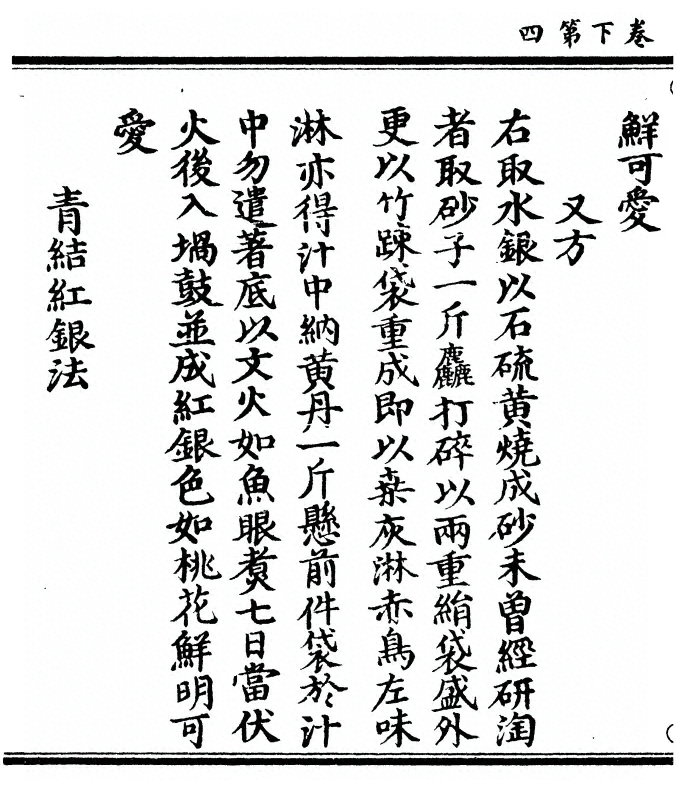 卷下第四
鮮可愛
又方
右取水銀以石硫黃燒成砂未曾經研淘
者取砂子一斤麤打碎以兩重絹袋盛外
更以竹踈袋重成即以桒灰淋赤鳥左味
淋亦得汁中納黃丹一斤懸前件袋於汁
中勿遣著底以文火如魚眼煑七日當伏
火後入堝鼓並成紅銀色如桃花鮮明可
愛
青結紅銀法